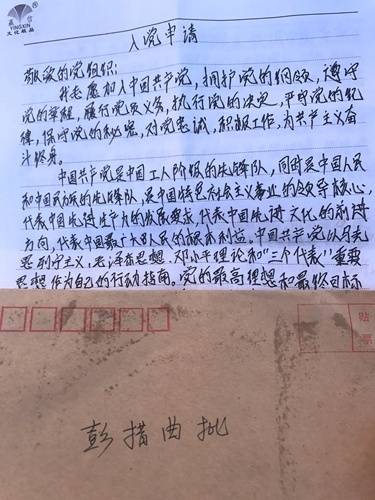 YINGXIN
文化纸品
入党申请
敬爱的党组织:
我志愿加入中国共产党,拥护党的纲领,遵守
党的章程,履行党员义务,执行党的决定,严守党的纪
律,保守党的秘密,对党忠诚,积极工作,为共产主义奋
斗终身。
中国共产党是中国工人阶级的先锋队,同时是中国人民
和中国民族的先锋队,是中国特色社会主义事业的领导核心,
代表中国先进生产力的发展要求,代表中国先进文化的前进
方向,代表中国最广大人民的根本利益。中国共产党以马克
思列宁主义,毛泽东思想,邓小平理论和“三个代表”重要
思想作为自己的行动指南。党的最高理想和最终目标
贴
票
彭措曲批